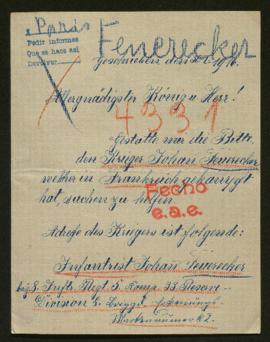 a París
Pedir informes
Que se hace así
Devolver
Feuerecker
Geschrieben den
Allergnädigster König u. Herr!
4331
Gestatte mir die Bitte,
den Krieger Johan Feuerecker
welcher in Frankreich gekämpft
hat, suchen zu helfen.
Fecho
e.a.e.
Adresse des Kriegers ist folgende:
Infantrist Johan Feuerecker
5. Komp. 33 Reserve
Division